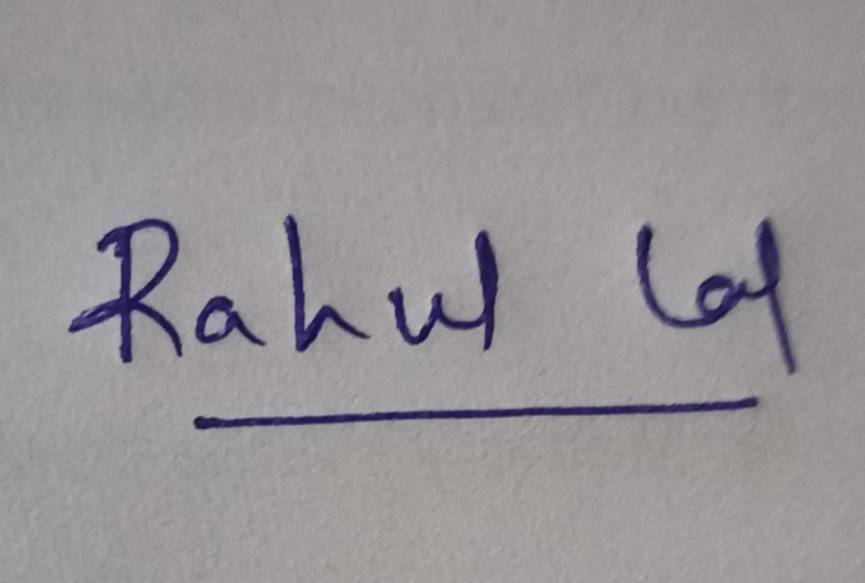 Rahul Lal